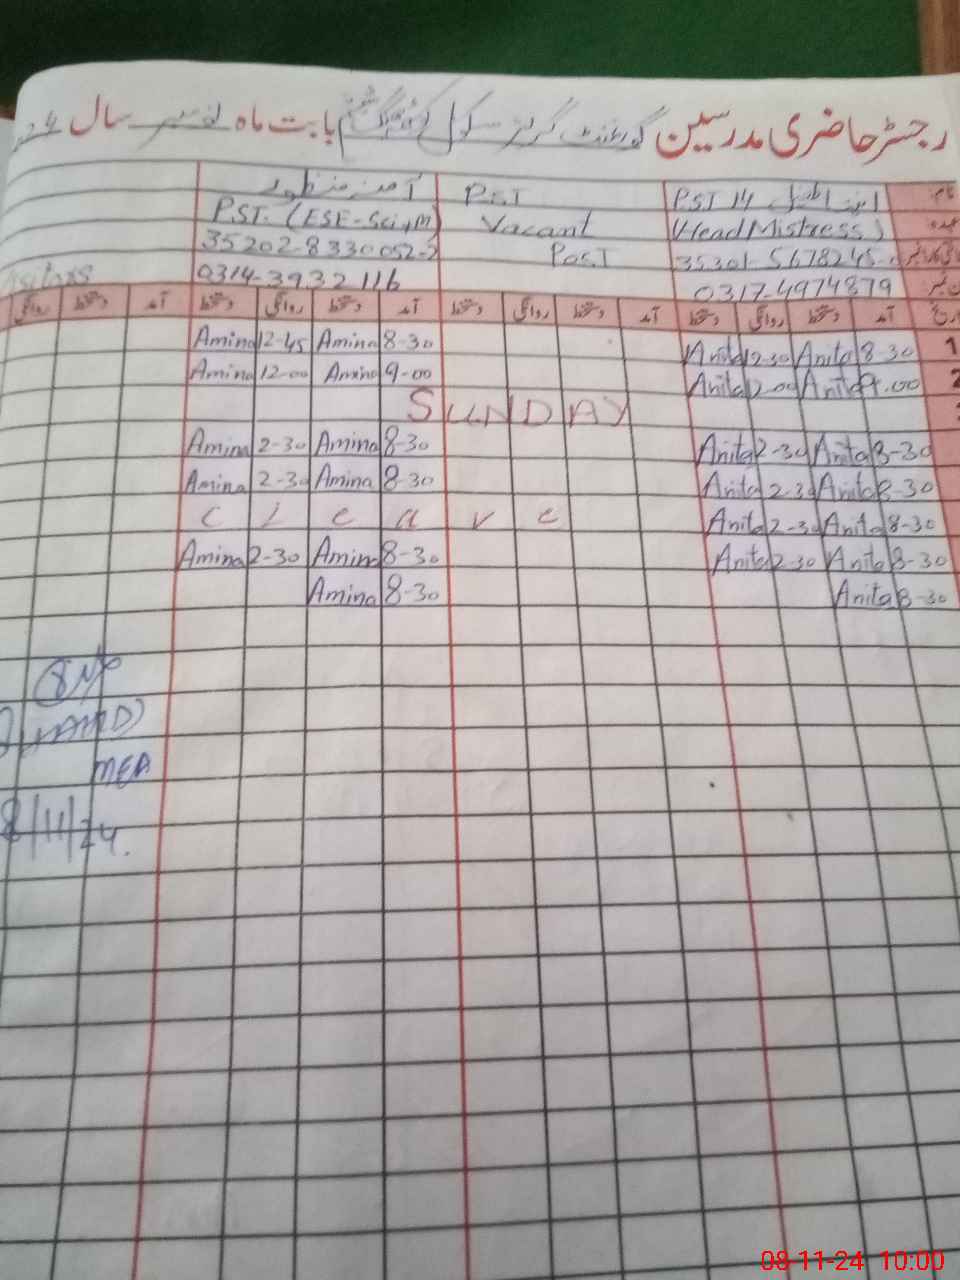 رجسٹر حاضری مدرسین گورنمنٹ گرلز سکول بابت ماہ نومبر سال 24
نام PST 14 PST آمنہ منظور
عہدہ (Head Mistress) Vacant PST. (ESE-Sci,M)
35301-5678245- Post 35202-8330052-2
0317-4974879 0314-3932116
تاریخ آمد دستخط روانگی دستخط آمد دستخط روانگی دستخط آمد دستخط روانگی دستخط آمد دستخط روانگی
1 8-30 Anita 12-30 Anita 8-30 Amina 12-45 Amina
2 9.00 Anita 2-00 Anita 9-00 Amina 12-00 Amina
SUNDAY
8-30 Anita 2-30 Anita 8-30 Amina 2-30 Amina
8-30 Anita 2-30 Anita 8-30 Amina 2-30 Amina
8-30 Anita 2-30 Anita C l e a v e
8-30 Anita 2-30 Anita 8-30 Amina 2-30 Amina
8-30 Anita 8-30 Amina
MEA
8/11/24.
08-11-24 10:00